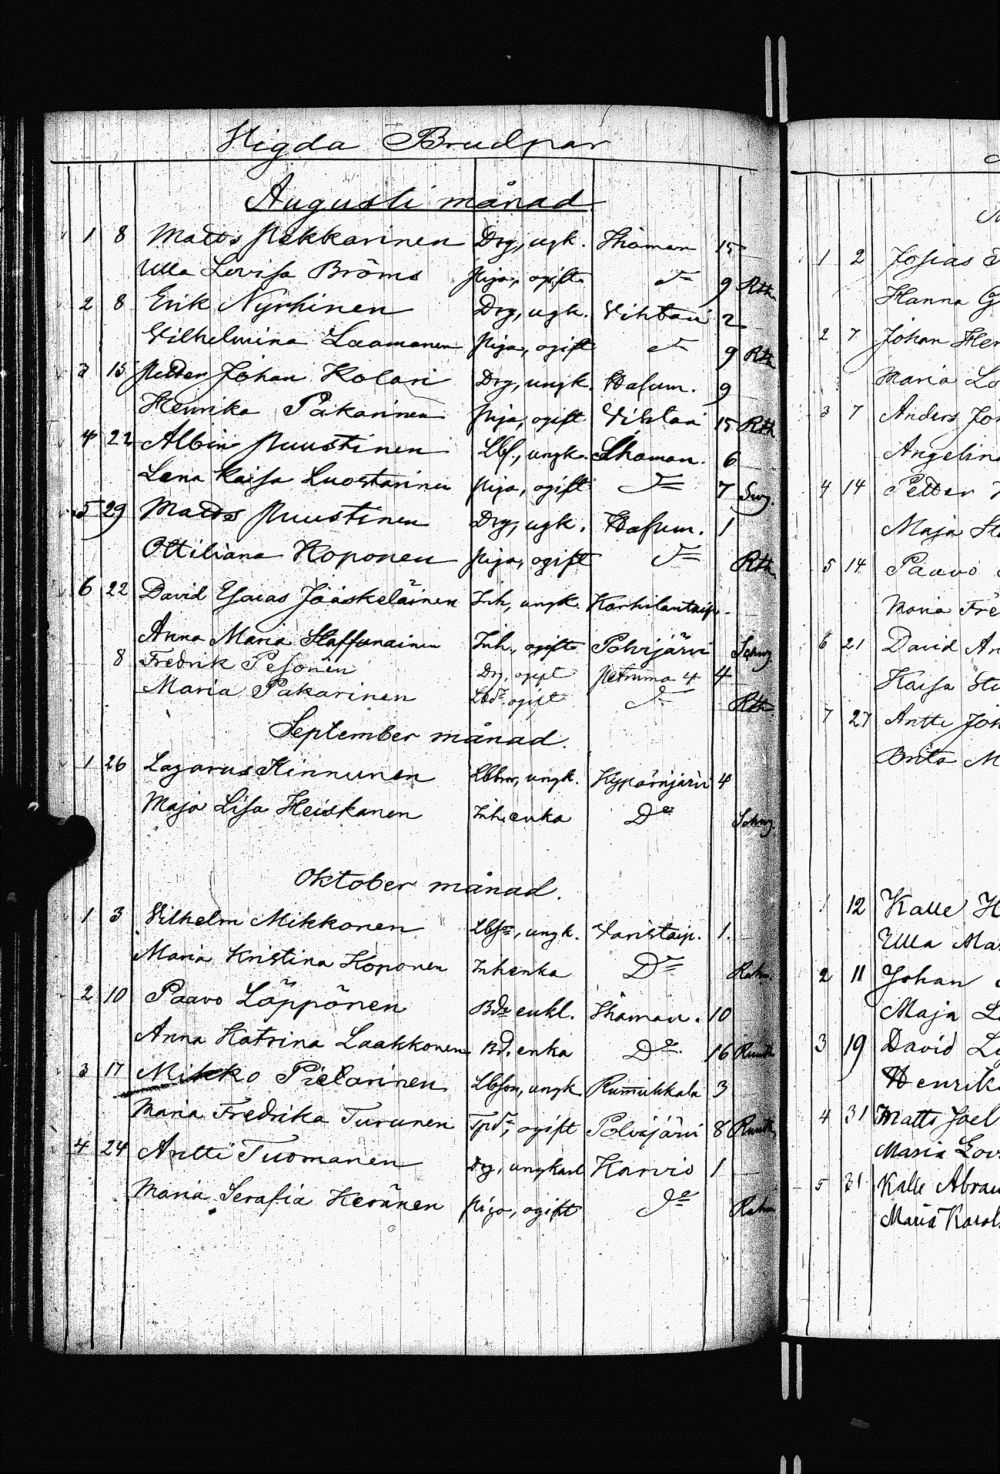 Wigda Brudpar
Augusti månad
1 8 Matts Pekkarinen Drg, ugk. Thåman 15
Ulla Lovisa Broms Piga, ogift do 9 Rth
2 8 Erik Nyrhinen Drg, ugk. Vihtari 2
Vilhelmina Laamanen Piga, ogift do 9 Rth
3 15 Petter Johan Kolari Drg, ungk. Hasum. 9
Henrika Pakarinen Piga, ogift Vihtari 15 Rth
4 22 Albin Puustinen Lbf., ungk. Thåman. 6
Lena Kaisa Luostarinen Piga, ogift Do 7 Swg.
5 29 Matts Puustinen Drg, ugk. Hasum. 1
Ottiliana Koponen Piga, ogift Do Rth
6 22 David Esaias Jääskeläinen Inh, ungk. Karhilantaip.
Anna Maria Staffunainen Inh, ogift Polvijärvi Schwg.
8 Fredrik Pesonen Drg, ogift Petruma 4 4
Maria Pakarinen Lbdr ogift Do Rth.
September månad.
1 26 Lazarus Kinnunen Lbbm, ungk. Hypönjärvi 4
Maja Lisa Heiskanen Inh. enka Do Schwg.
Oktober månad.
1 3 Vilhelm Mikkonen Lbsn, ungk. Varistaip. 1.
Maria Kristina Koponen Inhenka Do Rahm.
2 10 Paavo Löppönen Bde enkl. Thåman. 10
Anna Katrina Laakkonen Bd. enka Do 16 Runth
3 17 Mikko Pielarinen Lbson, ungk Rummukkala 3
Maria Fredrika Turunen Tpdr, ogift Polvijärvi 8 Runth
4 24 Antti Tuomanen Drg, ungkarl Karvio 1
Maria Serafia Keränen Piga, ogift Do Rahm
1 2 Josias
Hanna
2 7 Johan Hen
Maria Lo
3 7 Anders Joh
Angelina
4 14 Petter
Maja Sta
5 14 Paavo
Maria Fre
6 21 David An
Kaisa Sti
7 27 Antti Joh
Brita M
1 12 Kalle H
Ulla Mar
2 11 Johan
Maja L
3 19 David L
Henrika
4 31 Matts Joel
Maria Lov
5 31 Kalle Abram
Maria Karol